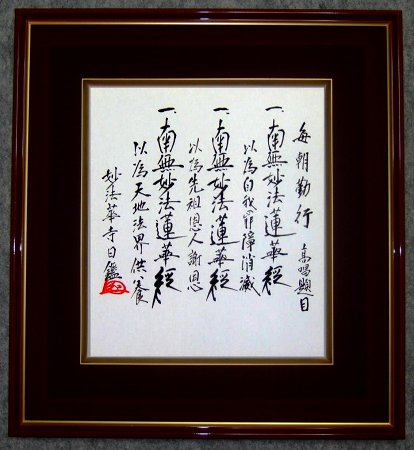 毎朝勤行 高唱題目
一、南無妙法蓮華経
以為自我罪障消滅
一、南無妙法蓮華経
以為先祖恩人謝恩
一、南無妙法蓮華経
以為天地法界供養
妙法華寺日鑑